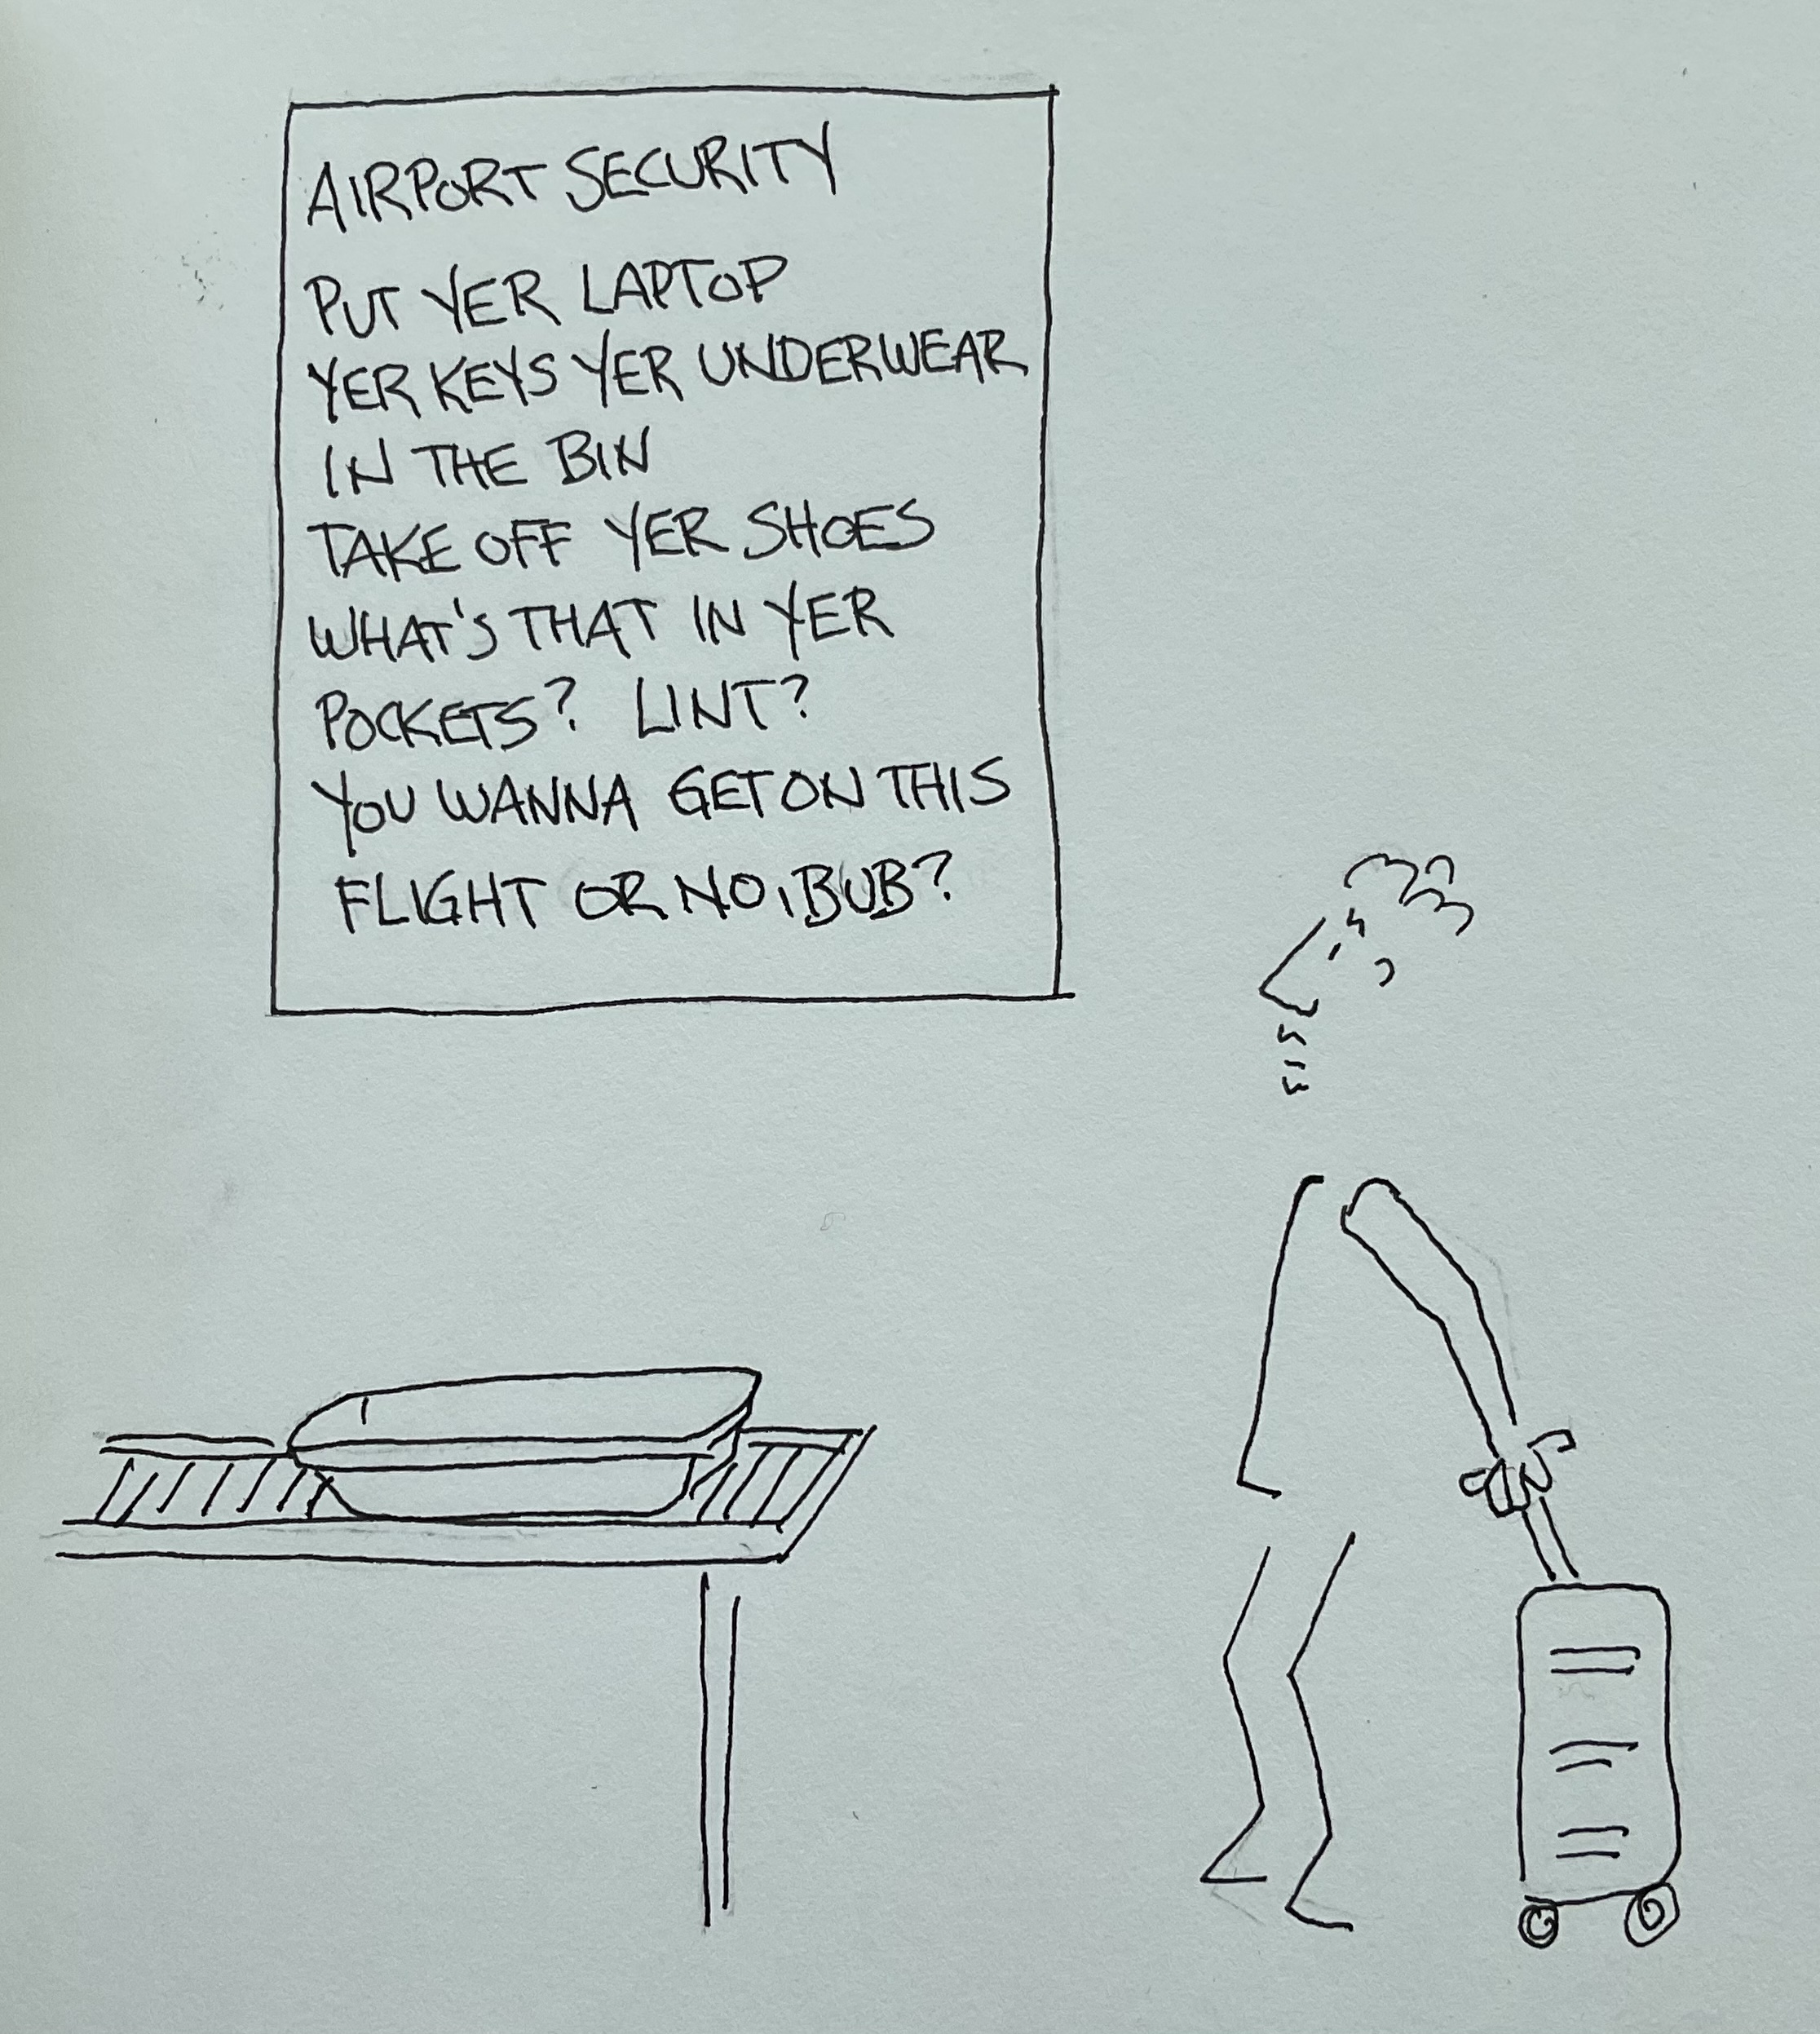 AIRPORT SECURITY
PUT YER LAPTOP
YER KEYS YER UNDERWEAR
IN THE BIN
TAKE OFF YER SHOES
WHAT'S THAT IN YER
POCKETS? LINT?
YOU WANNA GET ON THIS
FLIGHT OR NO, BUB?